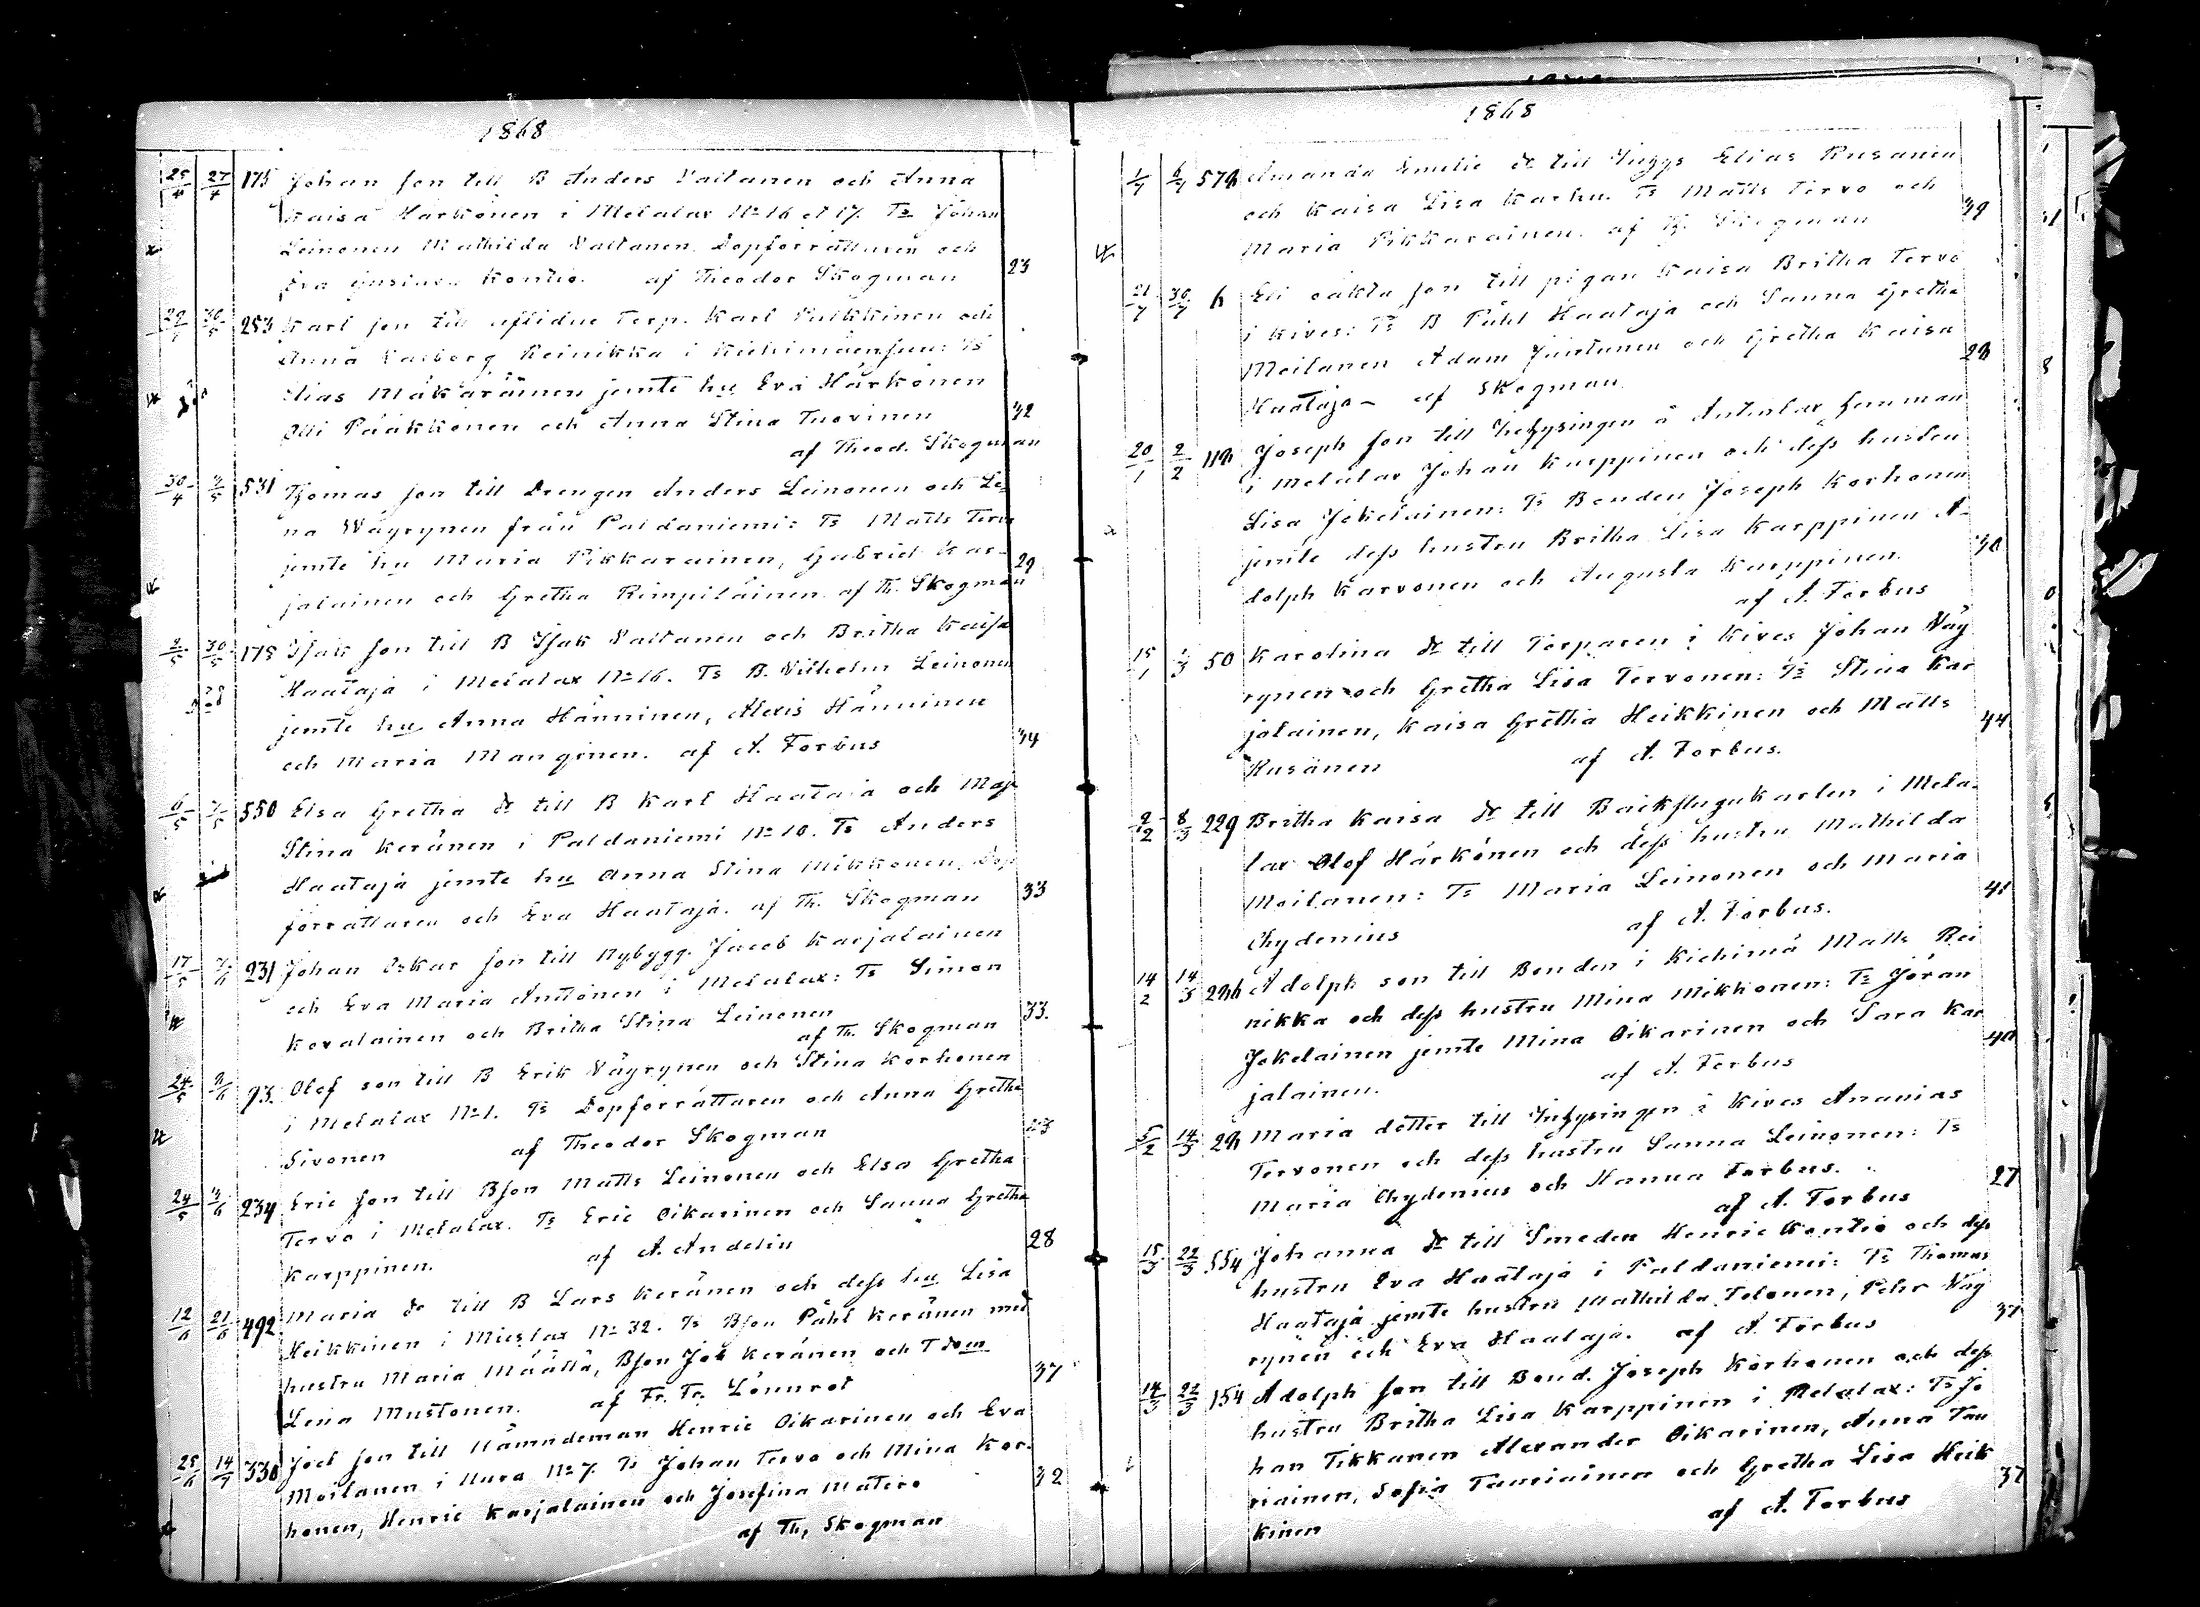 1868
25/4 27/4 175 Johan son till B Anders Valtanen och Anna
Kaisa Härkönen i Melalax No 16 et 17. Ts Johan
Leinonen Mathilda Valtanen Dopförrättaren och
Eva Kontio. af Theodor Skogman 23
30/5 253 Karl son till aflidne Torp. Karl Pulkkinen och
Anna Valborg Reinikka i Kiehimäensuu: Ts
Elias Mäkäräinen jemte hu Eva Härkönen
Olli Pääkkönen och Anna Stina Tuovinen 32
af Theod. Skogman
30/4 3/5 531 Thomas son till Drengen Anders Leinonen och Le-
na Wäyrynen från Paldaniemi: Ts Matts Tervo
jemte hu Maria Pikkarainen, Gabriel Kar-
jalainen och Gretha Rimpiläinen af Th. Skogman 29
2/5 30/5 178 Isak son till B Isak Valtanen och Britha Kaisa
Haataja i Melalax No 16. Ts B. Vilhelm Leinonen
jemte hu Anna Hänninen, Alexis Hänninen
och Maria Manginen. af A. Forbus 34
6/5 7/5 550 Elsa Gretha dr till B Karl Haataja och Maja
Stina Keränen i Paldaniemi No 10. Ts Anders
Haataja jemte hu Anna Stina Mikkonen, Dop
förrättaren och Eva Haataja. af Th. Skogman 33
17/5 7/6 231 Johan Oskar son till Nybygg. Jacob Karjalainen
och Eva Maria Anttonen i Melalax: Ts Simon
Kovalainen och Britha Stina Leinonen 33.
af Th. Skogman
24/5 9/6 93. Olof son till B Erik Väyrynen och Stina Korhonen
i Melalax No 1. Ts Dopförrättaren och Anna Gretha
Sivonen af Theodor Skogman 23
24/5 3/6 234 Eric son till Bson Matts Leinonen och Elsa Gretha
Tervo i Melalax. Ts Eric Oikarinen och Sanna Gretha
Karppinen. af A. Andelin 28
12/6 21/6 492 Maria dr till B Lars Keränen och dess hu Lisa
Heikkinen i Mieslax No 32. Ts Bson Påhl Keränen med
hustru Maria Määttä, Bson Joh Keränen och T dom
Lena Mustonen. af Fr. Tr. Lönnrot 37
25/6 14/7 330 Joel son till Nämndeman Henric Oikarinen och Eva
Moilanen i Uura No 7. Ts Johan Tervo och Mina Kor-
honen, Henric Karjalainen och Josefina Matero 32
af Th, Skogman
1868
1/7 6/7 578 Amanda Emilie dr till Inhys Elias Rusanen
och Kaisa Lisa Karhu. Ts Matts Tervo och
Maria Pikkarainen. af Th. Skogman 39
21/7 30/7 6 Eli oäkta son till pigan Kaisa Britha Tervo
i Kives: Ts B Påhl Haataja och Sanna Gretha
Moilanen Adam Juntunen och Gretha Kaisa 28
Haataja – af Skogman
20/1 2/2 Joseph son till Inhysingen å Antinlax hemman
i Melalax Johan Karppinen och dess hustru
Lisa Jokelainen: Ts Bonden Joseph Korhonen
jemte dess hustru Britha Lisa Karppinen A- 30
dolph Karvonen och Augusta Karppinen.
af A. Forbus
15/1 1/3 50 Karolina dr till Torparen i Kives Johan Väy
rynen och Gretha Lisa Tervonen: Ts Stina Kar
jalainen, Kaisa Gretha Heikkinen och Matts 44
Rusänen af A. Forbus.
2/2 8/3 229 Britha Kaisa dr till Backstugukarlen i Mela-
lax Olof Härkönen och dess hustru Mathilda
Moilanen: Ts Maria Leinonen och Maria 41
Chydenius af A. Forbus.
14/2 14/3 Adolph son till Bonden i Kiehimä Matts Rei
nikka och dess hustru Mina Mikkonen: Ts Jöran
Jokelainen jemte Mina Oikarinen och Sara Kar 40
jalainen. af A. Forbus
5/2 14/3 Maria dotter till Inhysingen i Kives Ananias
Tervonen och dess hustru Sanna Leinonen: Ts
Maria Chydenius och Hanna Forbus. 27
af A. Forbus
15/3 22/3 554 Johanna dr till Smeden Henric Kontio och dess
hustru Eva Haataja i Paldaniemi: Ts Thomas
Haataja jemte hustru Mathilda Tolonen, Pehr Väy
rynen och Eva Haataja. af A. Forbus 37
14/3 22/3 154 Adolph son till Bond. Joseph Korhonen och dess
hustru Britha Lisa Karppinen i Melalax: Ts Jo
han Tikkanen Alexander Oikarinen, Anna Tau
riainen, Sofia Tauriainen och Gretha Lisa Heik 37
kinen af A. Forbus